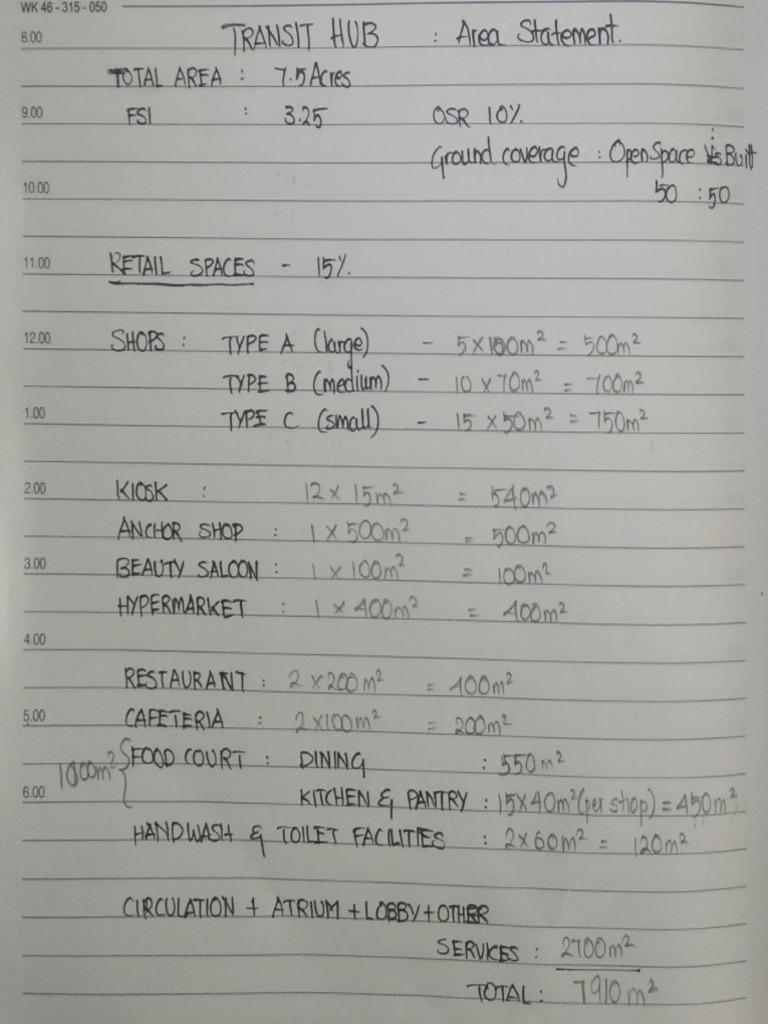 WK 46 - 315 - 050
8.00 TRANSIT HUB : Area Statement.
TOTAL AREA : 7.5 Acres
9.00 FSI : 3.25 OSR 10%
Ground coverage : Open Space Vs Built
10.00 50 : 50
11.00 RETAIL SPACES - 15%.
12.00 SHOPS : TYPE A (large) - 5 x 100m² = 500m²
TYPE B (medium) - 10 x 70m² = 700m²
1.00 TYPE C (small) - 15 x 50m² = 750m²
2.00 KIOSK : 12 x 15m² = 540m²
ANCHOR SHOP : 1 x 500m² = 500m²
3.00 BEAUTY SALOON : 1 x 100m² = 100m²
HYPERMARKET : 1 x 400m² = 400m²
4.00
RESTAURANT : 2 x 200m² = 400m²
5.00 CAFETERIA : 2 x 100m² = 200m²
1000m² { FOOD COURT : DINING : 550m²
6.00 KITCHEN & PANTRY : 15 x 40m² (per shop) = 450m²
HANDWASH & TOILET FACILITIES : 2 x 60m² = 120m²
CIRCULATION + ATRIUM + LOBBY + OTHER
SERVICES : 2700m²
TOTAL : 7910m²